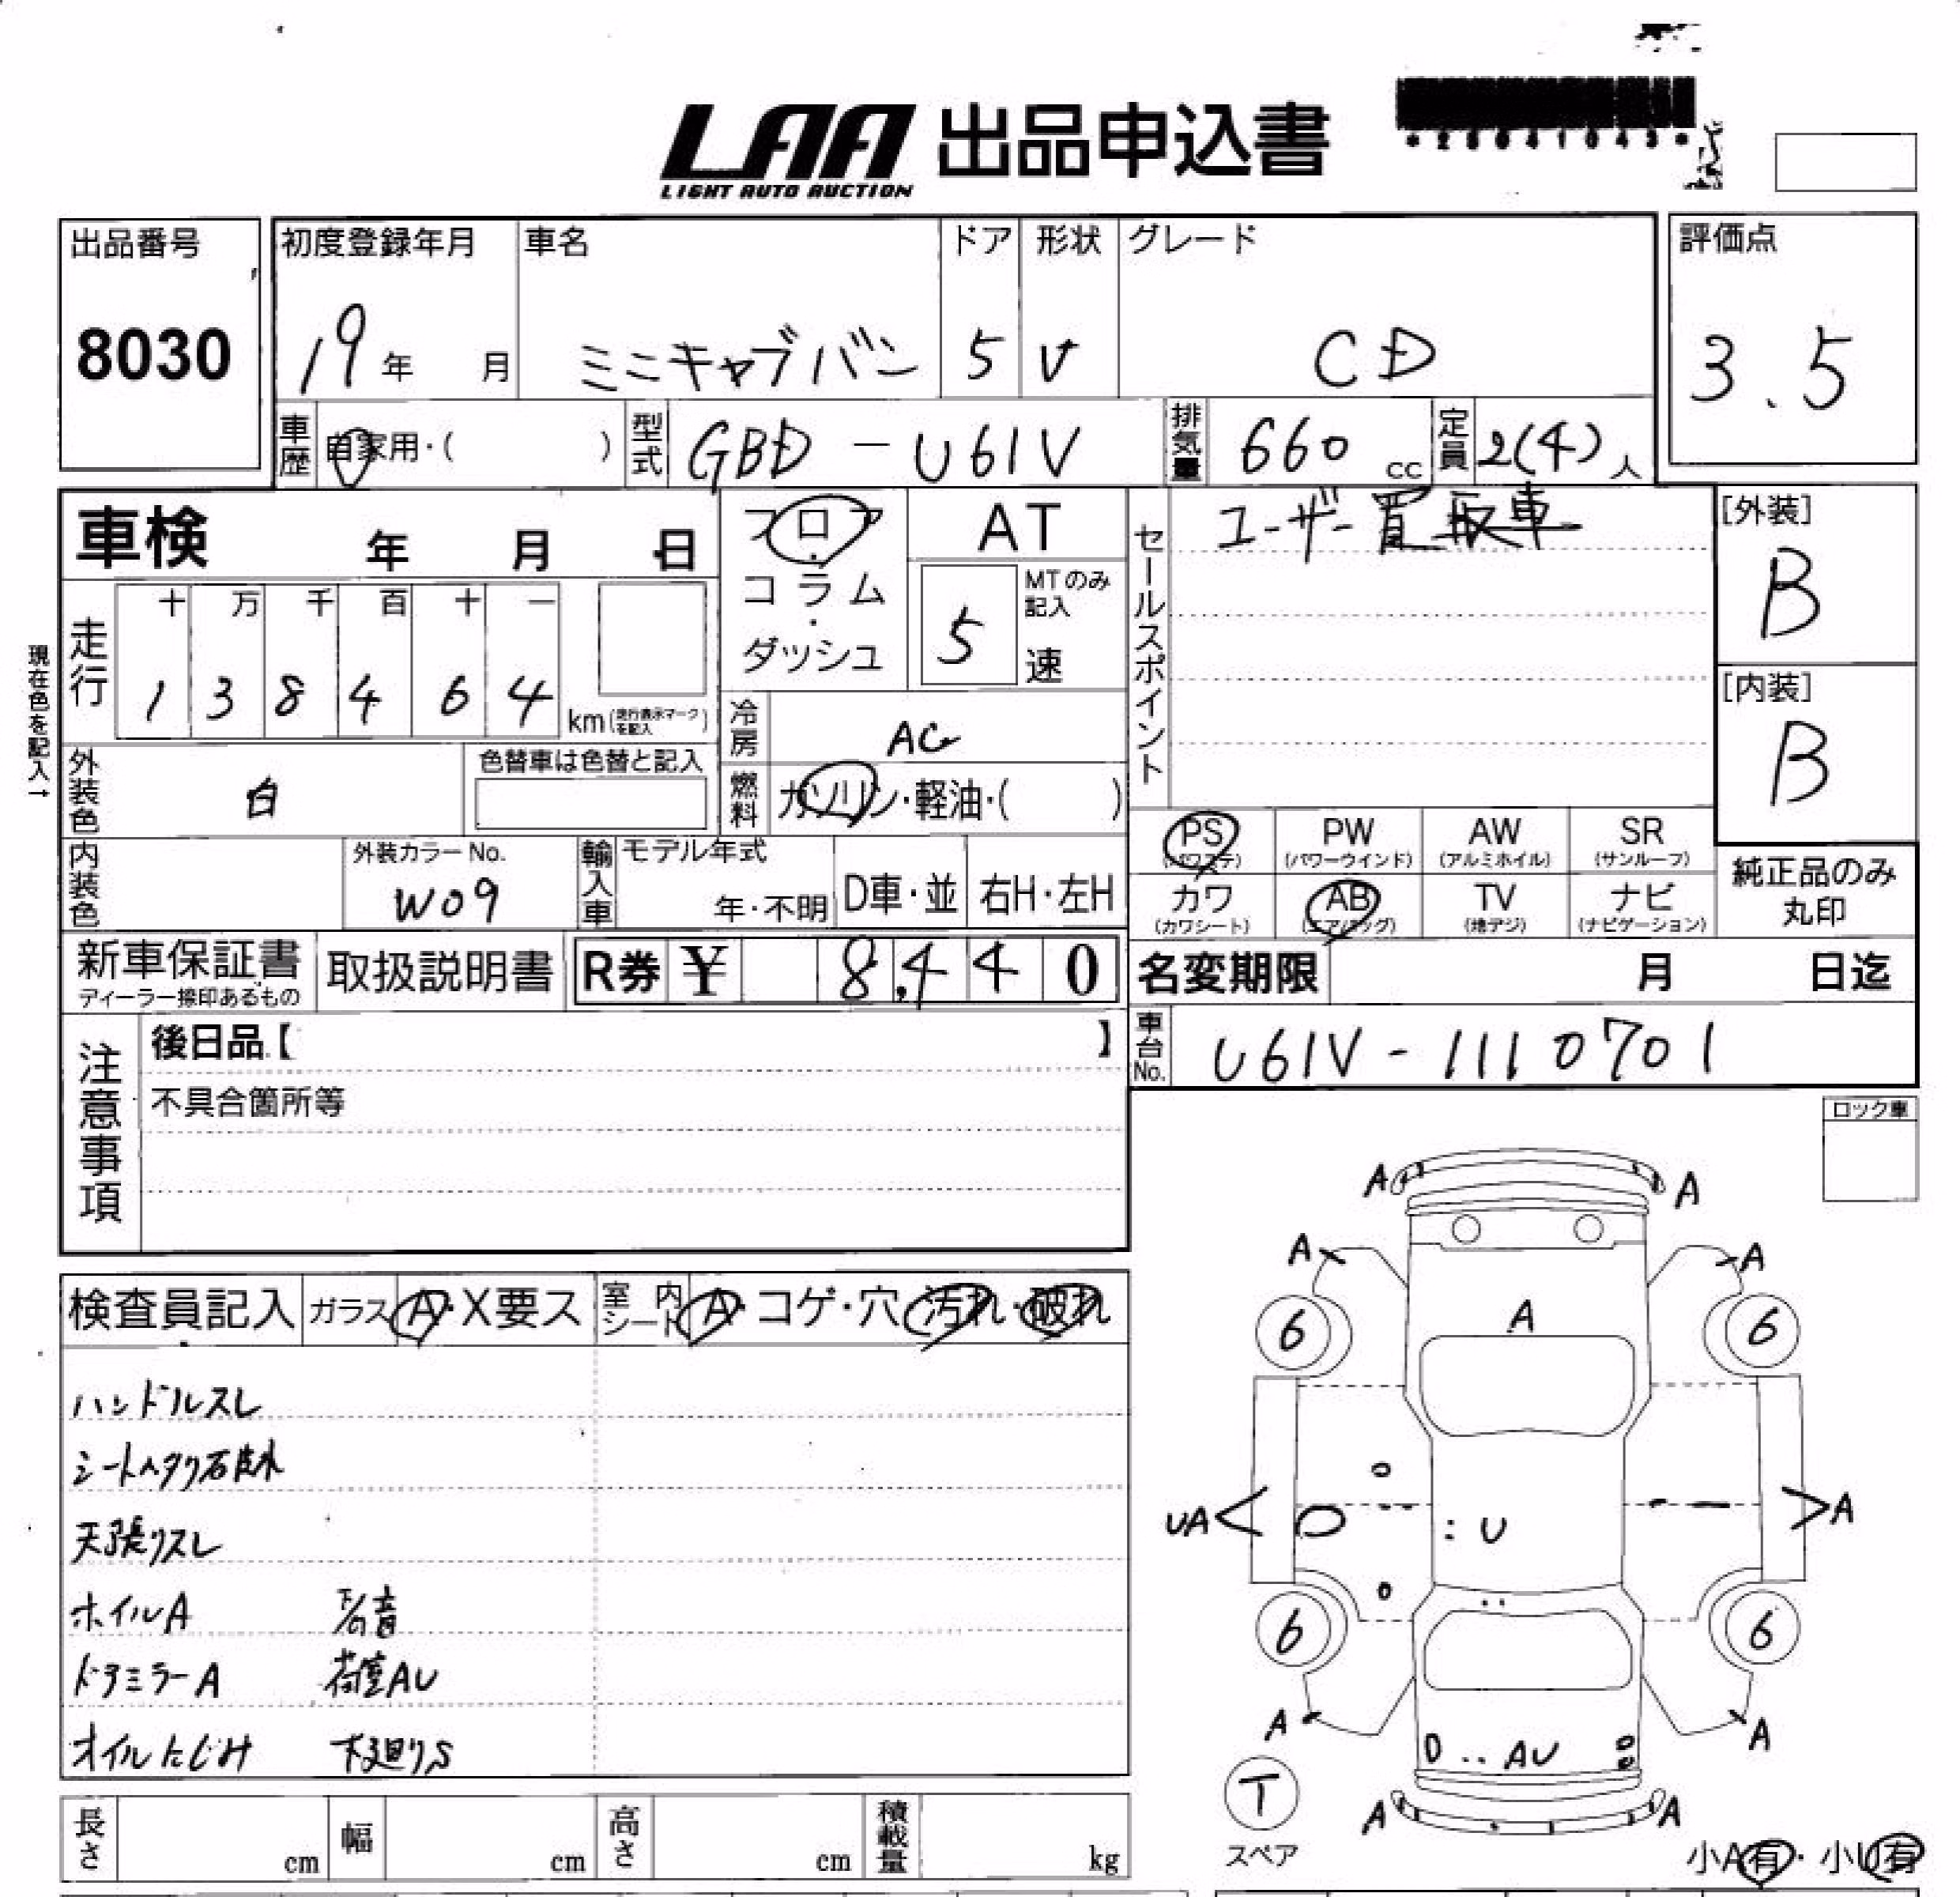 LAA 出品申込書
LIGHT AUTO AUCTION
出品番号
8030
初度登録年月
19年 月
車名
ミニキャブバン
ドア
5
形状
V
グレード
CD
評価点
3.5
車歴 自家用・( )
型式 GBD-U61V
排気量 660 cc
定員 2(4)人
車検 年 月 日
フロア・コラム・ダッシュ
AT
5
MTのみ記入
速
セールスポイント
ユーザー買取車
[外装]
B
[内装]
B
現在色を記入→
走行
十 万 千 百 十 一
1 3 8 4 6 4
km(走行表示マークを記入)
冷房 AC
燃料 ガソリン・軽油・( )
外装色 白
色替車は色替と記入
内装色
外装カラーNo.
W09
輸入車
モデル年式
年・不明
D車・並
右H・左H
PS
(パワステ)
PW
(パワーウインド)
AW
(アルミホイル)
SR
(サンルーフ)
カワ
(カワシート)
AB
(エアバッグ)
TV
(地デジ)
ナビ
(ナビゲーション)
純正品のみ
丸印
新車保証書
ディーラー捺印あるもの
取扱説明書
R券 ¥ 8,440
名変期限 月 日迄
車台No. U61V-1110701
注意事項
後日品【 】
不具合箇所等
ロック車
検査員記入
ガラス A・X要ス
室内シート A・コゲ・穴・汚れ・破れ
ハンドルスレ
天張リスレ
ホイルA
ドアミラーA
荷室AU
オイルにじみ
下廻りS
A A
A A
A
6 6
UA U A
6 6
A A
AU
A A
T
スペア
小A有・小U有
長さ cm
幅 cm
高さ cm
積載量 kg